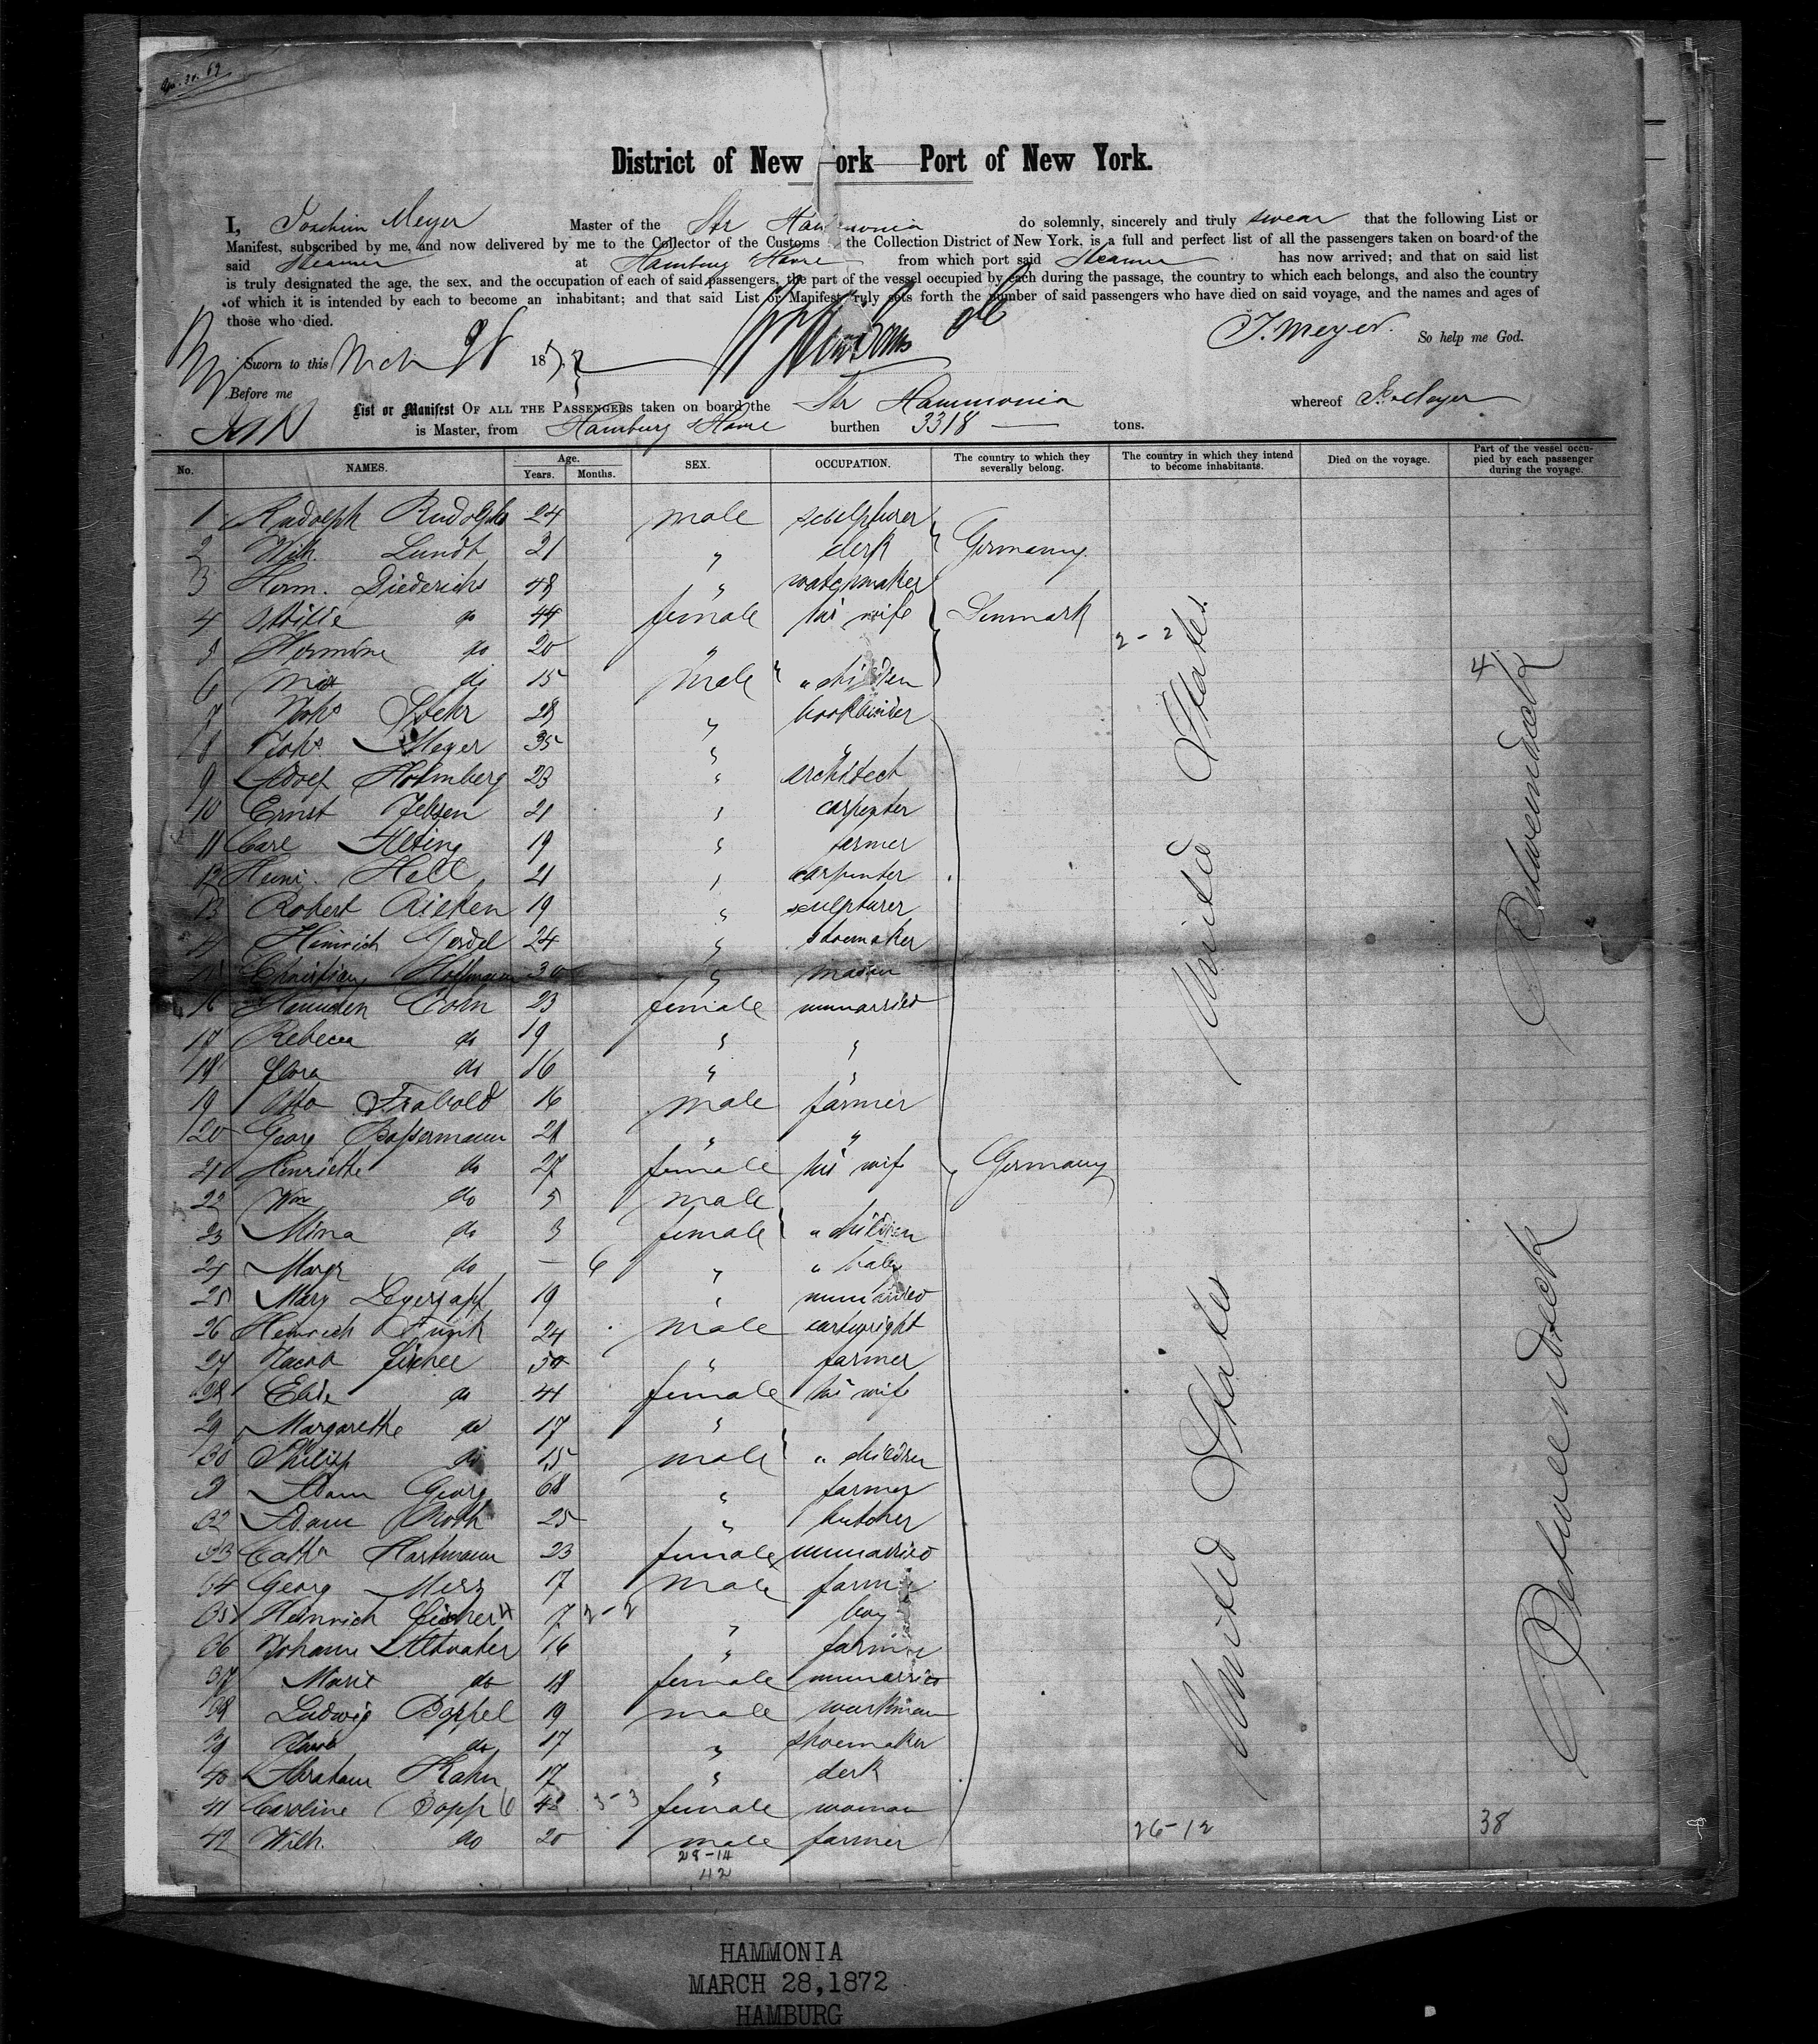 District of New ork Port of New York.
I, Joachim Meyer Master of the Str Hammonia do solemnly, sincerely and truly swear that the following List or
Manifest, subscribed by me, and now delivered by me to the Collector of the Customs the Collection District of New York, is a full and perfect list of all the passengers taken on board of the
said Steamer at Hamburg & Havre from which port said Steamer has now arrived; and that on said list
is truly designated the age, the sex, and the occupation of each of said passengers, the part of the vessel occupied by each during the passage, the country to which each belongs, and also the country
of which it is intended by each to become an inhabitant; and that said List or Manifest truly sets forth the number of said passengers who have died on said voyage, and the names and ages of
those who died.
J. Meyer. So help me God.
Sworn to this Mch 28 1872
Before me
List or Manifest OF ALL THE PASSENGERS taken on board the Str Hammonia whereof J. Meyer
is Master, from Hamburg & Havre burthen 3318 tons.
No. NAMES. Age. Years. Months. SEX. OCCUPATION. The country to which they severally belong. The country in which they intend to become inhabitants. Died on the voyage. Part of the vessel occupied by each passenger during the voyage.
1 Rudolph Rudolphs 24 male sculpturer
2 Wilh. Lundt 21 " clerk Germany
3 Herm. Diederichs 48 " watchmaker
4 Ottilie do 44 female his wife Denmark
5 Hermine do 20 " 2-2
6 Max do 15 male " children 4
7 Johs Stehr 28 " bookbinder
8 Johs Meyer 35 " "
9 Adolf Holmberg 23 " architect
10 Ernst Jebsen 21 " carpenter
11 Carl Alting 19 " farmer
12 Heinr. Hell 21 " carpenter
13 Robert Rieken 19 " sculpturer
14 Heinrich Gerdel 24 " shoemaker
15 Christian Hoffmann 30 " mason
16 Hannchen Cohn 23 female unmarried
17 Rebecca do 19 " "
18 Flora do 16 " "
19 Otto Frabold 16 male farmer
20 Georg Bassermann 28 " "
21 Henriette do 27 female his wife Germany
22 Wm do 5 male
23 Mina do 3 female " children
24 Margr do — 6 " " baby
25 Mary 19 " unmarried
26 Heinrich Funk 24 male cartwright
27 Jacob 50 " farmer
28 Elis. do 41 female his wife
29 Margarethe do 17 "
30 Philipp do 15 male " children
31 Adam Georg 68 " farmer
32 Adam Roth 25 " butcher
33 Cath. Hartmann 23 female unmarried
34 Georg Merz 17 male farmer
35 Heinrich 7 2-2 " boy
36 Johann Altvater 16 " farmer
37 Marie do 18 female unmarried
38 Ludwig Boppel 19 male workman
39 Jacob do 17 " shoemaker
40 Abraham Kahn 17 " clerk
41 Caroline Bopp 48 3-3 female woman
42 Wilh. do 20 male farmer 26-12 38
28-14
42
United States
United States
Betweendeck
Betweendeck
HAMMONIA
MARCH 28,1872
HAMBURG